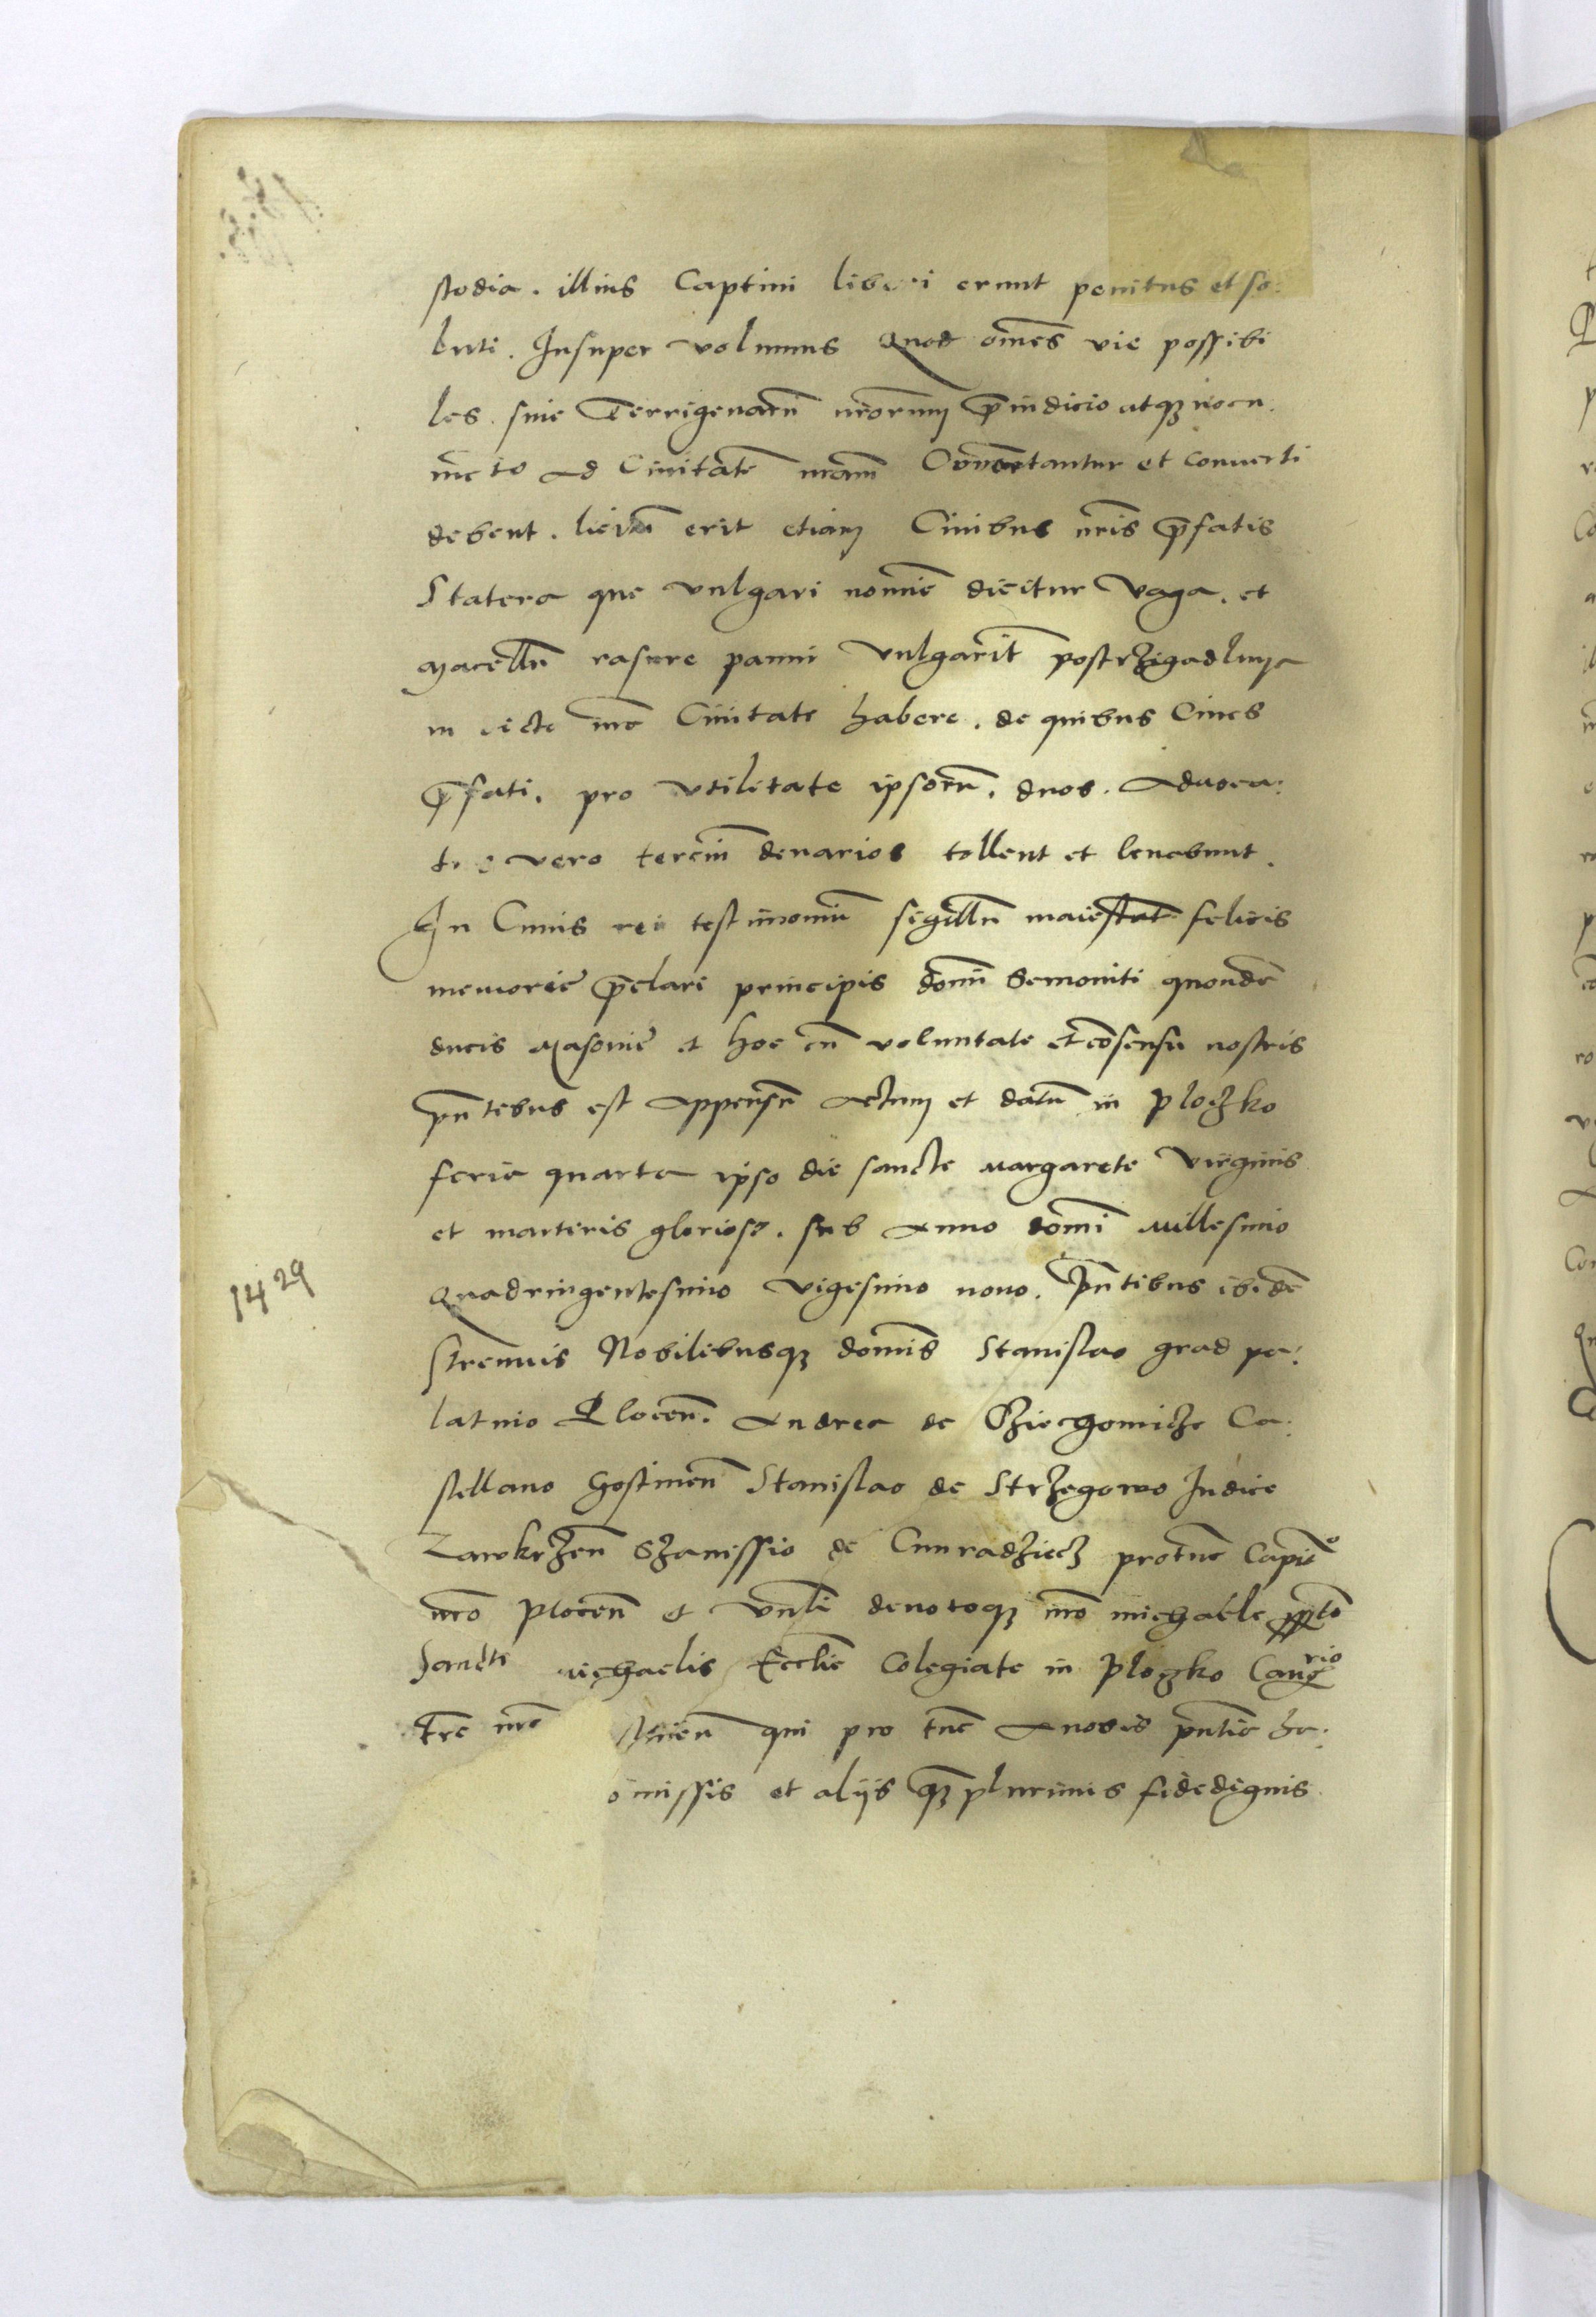 stodia. illius Captiui liberi erunt penitus et so:
luti. Insuper volumus Quod om̄es vie possibi
les. sine Terrigenarū nr̄orum p̄iudicio atq3 nocu.
mēto ad Ciuitatē nr̄am Conuertantur et conuerti
debent. licitū erit etiam Ciuibus nr̄is p̄fatis
Statera que vulgari nomine dicitur Vaga. et
Macellū rasure panni Vulgarit̄ postrzigadlnya
in dicte nr̄e Ciuitate habere. de quibus Ciues
p̄fati. pro vtilitate ipsorū. duos. Aduoca:
vero terciū denarios tollent et leuabunt.
In Cuius rei testimoniū sigillū maiestat felicis
memorie p̄clari principis domī Semouiti quondē
ducis Masouie et hoc cū voluntate et cōsensu nostris
pn̄tebus est appensū Actum et datū in Ploczko
feria quarta ipso die sancte Margarete Virginis
et marteris gloriose. sub Anno domī Millesimo
1429
Quadringentesimo vigesimo nono. Pn̄tibus ibidē
strenuis Nobilibusq3 domīs Stanislao grad pa:
latino Plocen̄. Andrea de Ca:
stellano Gostinen̄ Stanislao de Strzegowo Judice
Zawkrzen̄ Szanissio de Cunradziecz protūc Capit̄o
nr̄o Plocen̄ et devotoq3 nr̄o Michaele
Sancti Michaelis Eccl̄ie Colegiate in Ploczko Cancrio
qui pro tūc a nobis pn̄tia ha:
omissis et aliis q3 plurimis fidedignis